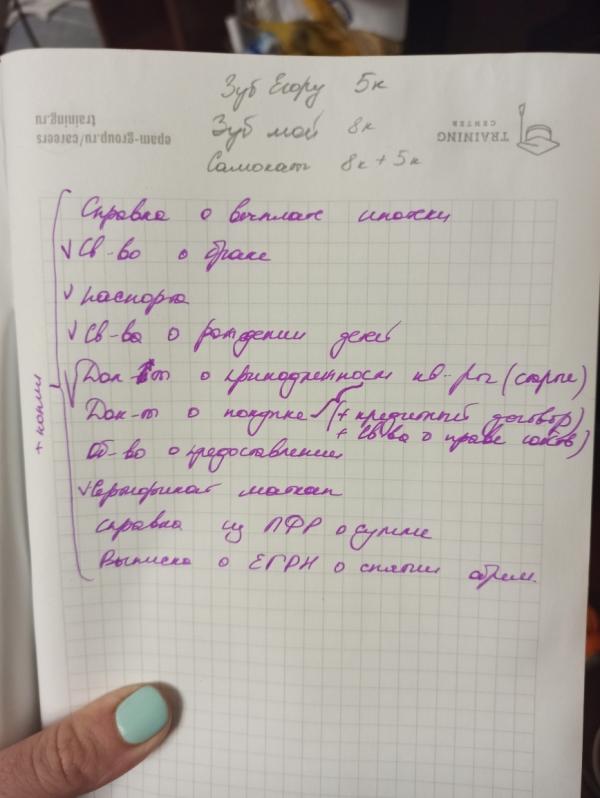 Зуб Егору 5к
Зуб мой 8к
Самокат 8к + 5к
epam-group.ru/careers
training.ru
TRAINING
CENTER
Справка о выплате ипотеки
√ Св-во о браке
√ паспорта
√ Св-ва о рождении детей
√ Док-ты о принадлежности кв-ры (старые)
Док-ты о покупке √ (+ кредитный договор)
+ св-ва о праве собств)
Об-во о предоставлении
√ Сертификат маткап
справка из ПФР о сумме
Выписка о ЕГРН о снятии обрем.
+ копии